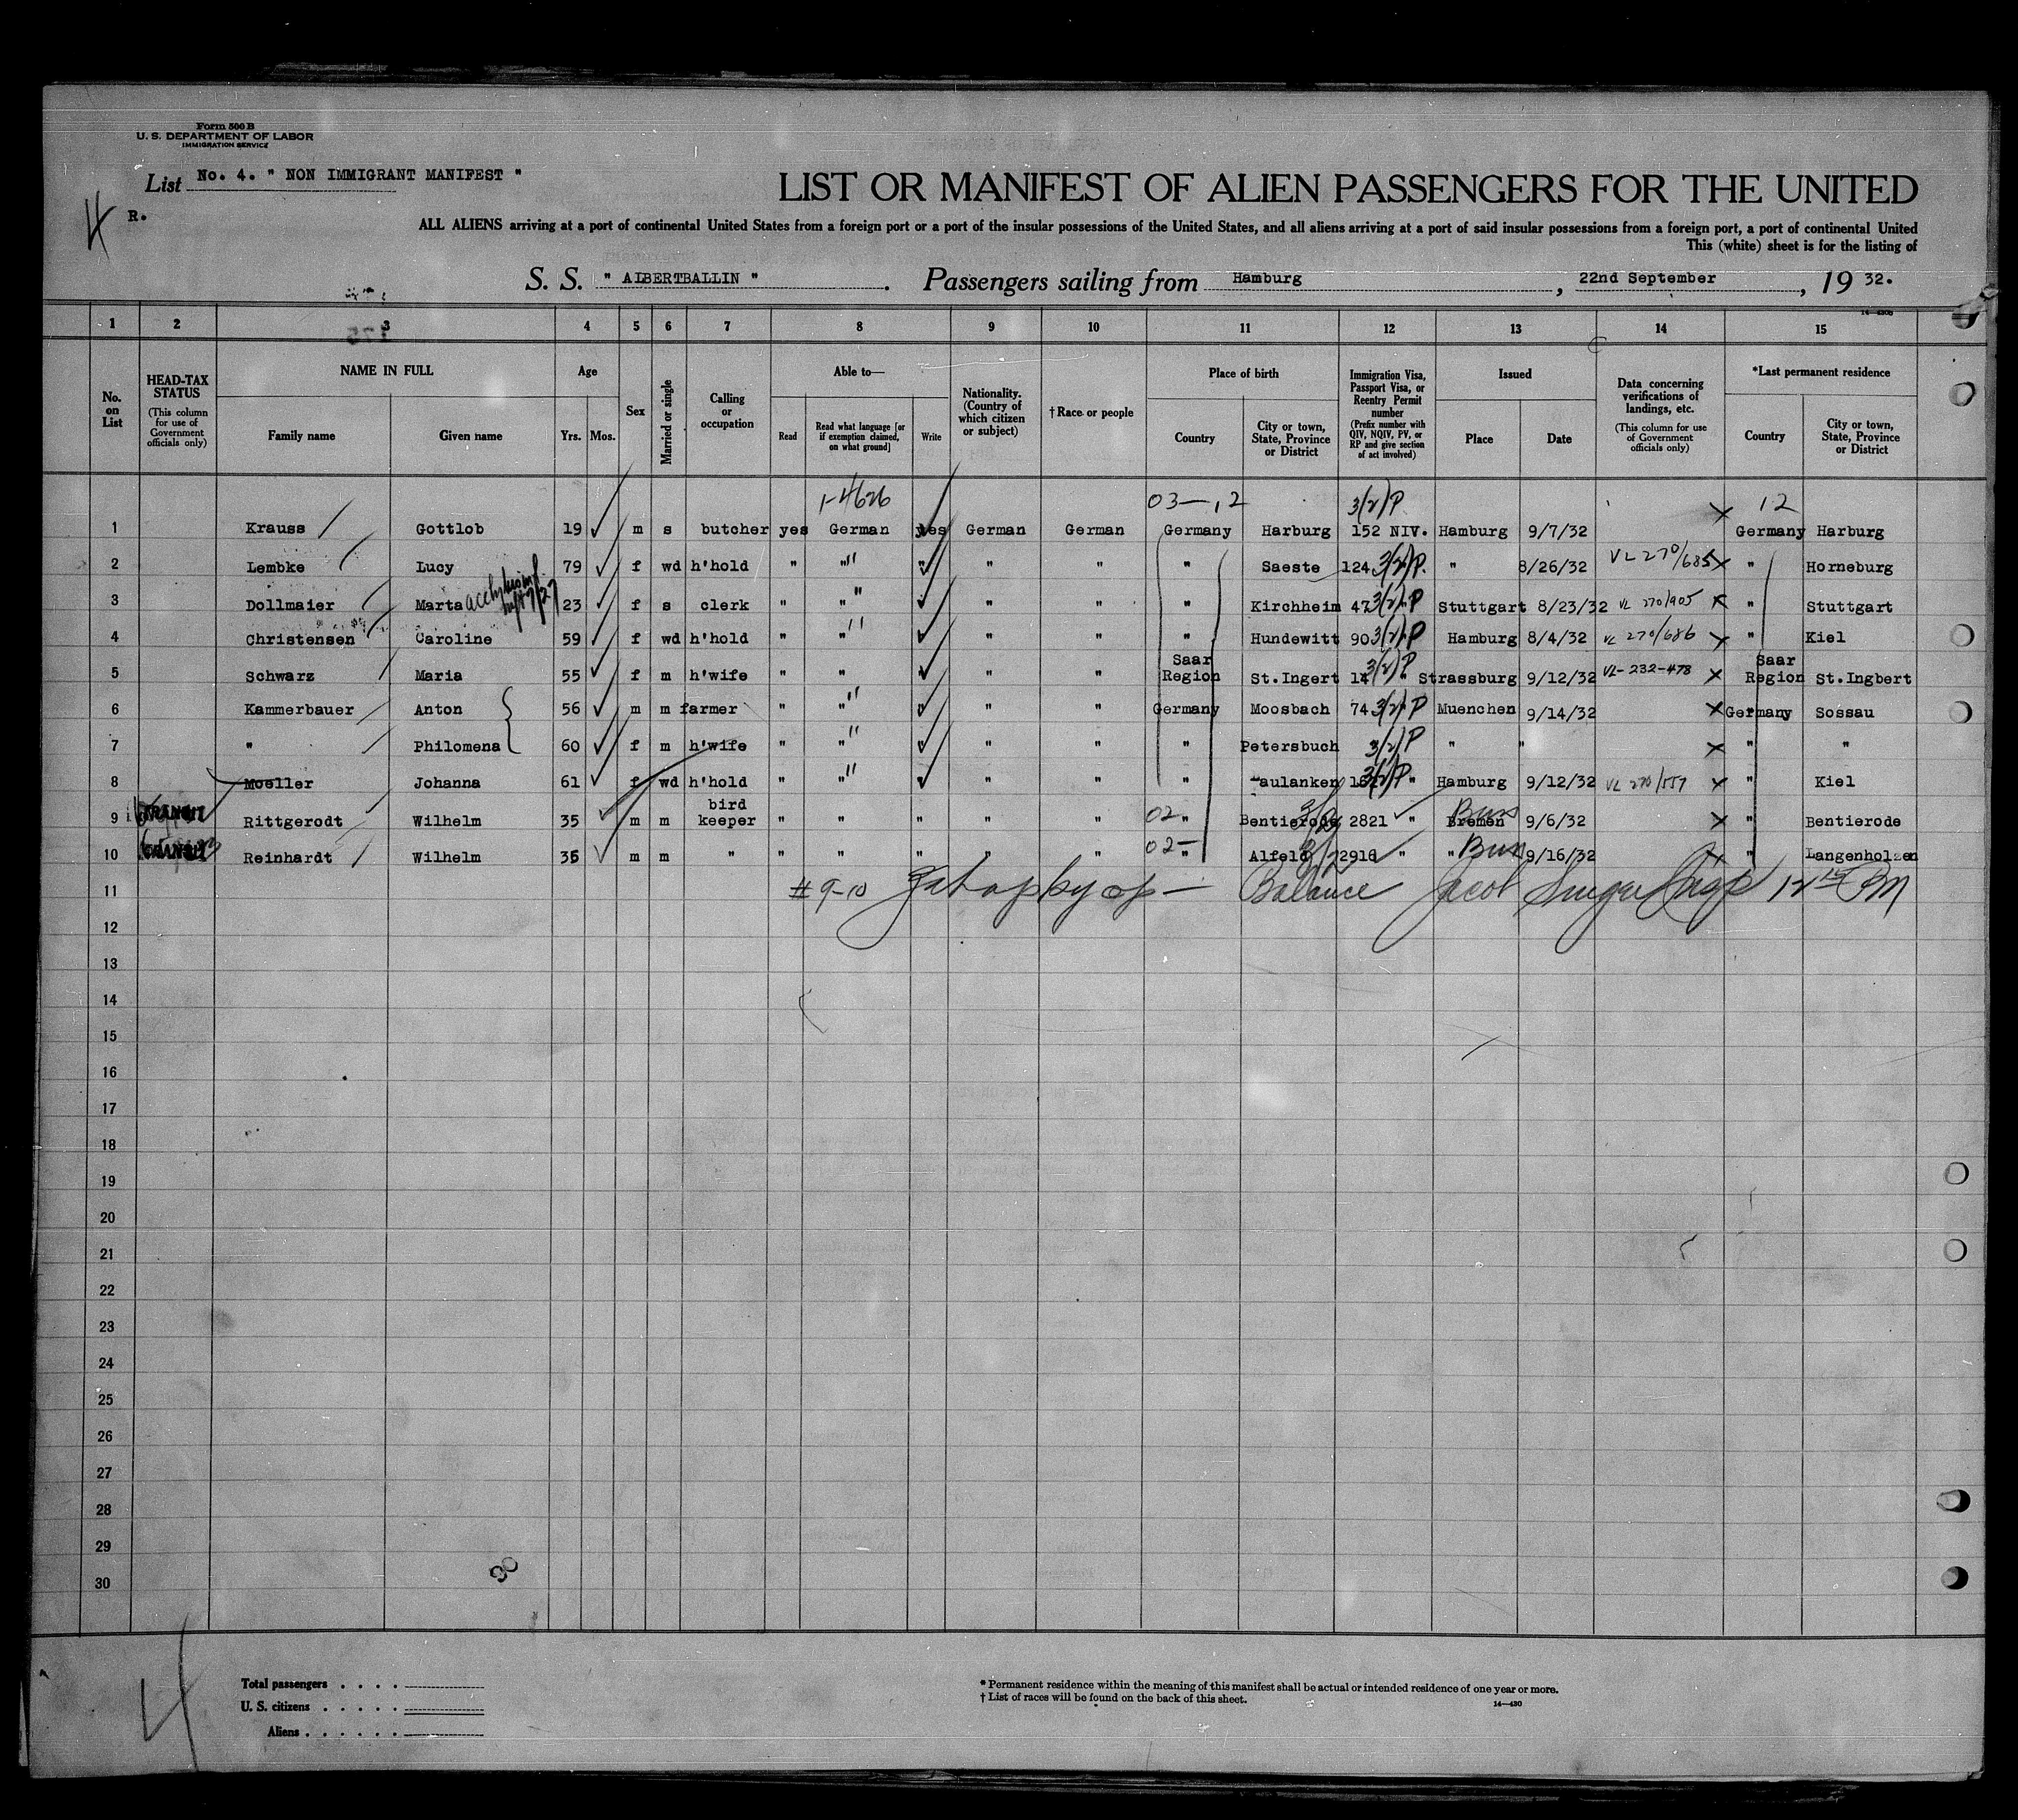 Form 500 B
U. S. DEPARTMENT OF LABOR
IMMIGRATION SERVICE
List No. 4. " NON IMMIGRANT MANIFEST "
R.
4
LIST OR MANIFEST OF ALIEN PASSENGERS FOR THE UNITED
ALL ALIENS arriving at a port of continental United States from a foreign port or a port of the insular possessions of the United States, and all aliens arriving at a port of said insular possessions from a foreign port, a port of continental United
This (white) sheet is for the listing of
S. S. " ALBERTBALLIN " . Passengers sailing from Hamburg , 22nd September , 19 32.
1 2 3 4 5 6 7 8 9 10 11 12 13 14 15
No. on List
HEAD-TAX STATUS (This column for use of Government officials only)
NAME IN FULL
Family name Given name
Age
Yrs. Mos.
Sex
Married or single
Calling or occupation
Able to—
Read Read what language [or if exemption claimed, on what ground] Write
Nationality. (Country of which citizen or subject)
† Race or people
Place of birth
Country City or town, State, Province or District
Immigration Visa, Passport Visa, or Reentry Permit number (Prefix number with QIV, NQIV, PV, or RP and give section of act involved)
Issued
Place Date
Data concerning verifications of landings, etc. (This column for use of Government officials only)
*Last permanent residence
Country City or town, State, Province or District
1-4626 03—,2 3(2)P 12
1 Krauss Gottlob 19 m s butcher yes German yes German German Germany Harburg 152 NIV. Hamburg 9/7/32 Germany Harburg
2 Lembke Lucy 79 f wd h'hold " " " " " " Saeste 124 3(2)P. " 8/26/32 VL 270/685 " Horneburg
3 Dollmaier Marta 23 f s clerk " " " " " " Kirchheim 47 3(2)P Stuttgart 8/23/32 VL 270/905 " Stuttgart
4 Christensen Caroline 59 f wd h'hold " " " " " " Hundewitt 90 3(2)P Hamburg 8/4/32 VL 270/686 " Kiel
5 Schwarz Maria 55 f m h'wife " " " " " Saar Region St.Ingert 14 3(2)P " Strassburg 9/12/32 VL-232-478 Saar Region St.Ingbert
6 Kammerbauer Anton 56 m m farmer " " " " " Germany Moosbach 74 3(2)P Muenchen 9/14/32 Germany Sossau
7 " Philomena 60 f m h'wife " " " " " " Petersbuch 3(2)P " " " "
8 Moeller Johanna 61 f wd h'hold " " " " " " aulanken 3(2)P " Hamburg 9/12/32 VL 270/557 " Kiel
9 TRANSIT Rittgerodt Wilhelm 35 m m bird keeper " " " " " 02 " Bentierode 2821 " Bremen 9/6/32 " Bentierode
10 TRANSIT Reinhardt Wilhelm 36 m m " " " " " " 02- " Alfeld 2916 " " 9/16/32 " Langenholzen
11 # 9-10 Balance Jacob
12
13
14
15
16
17
18
19
20
21
22
23
24
25
26
27
28
29
30
Total passengers . . . .
U. S. citizens . . . . .
Aliens . . . . . .
* Permanent residence within the meaning of this manifest shall be actual or intended residence of one year or more.
† List of races will be found on the back of this sheet.
14—430
4